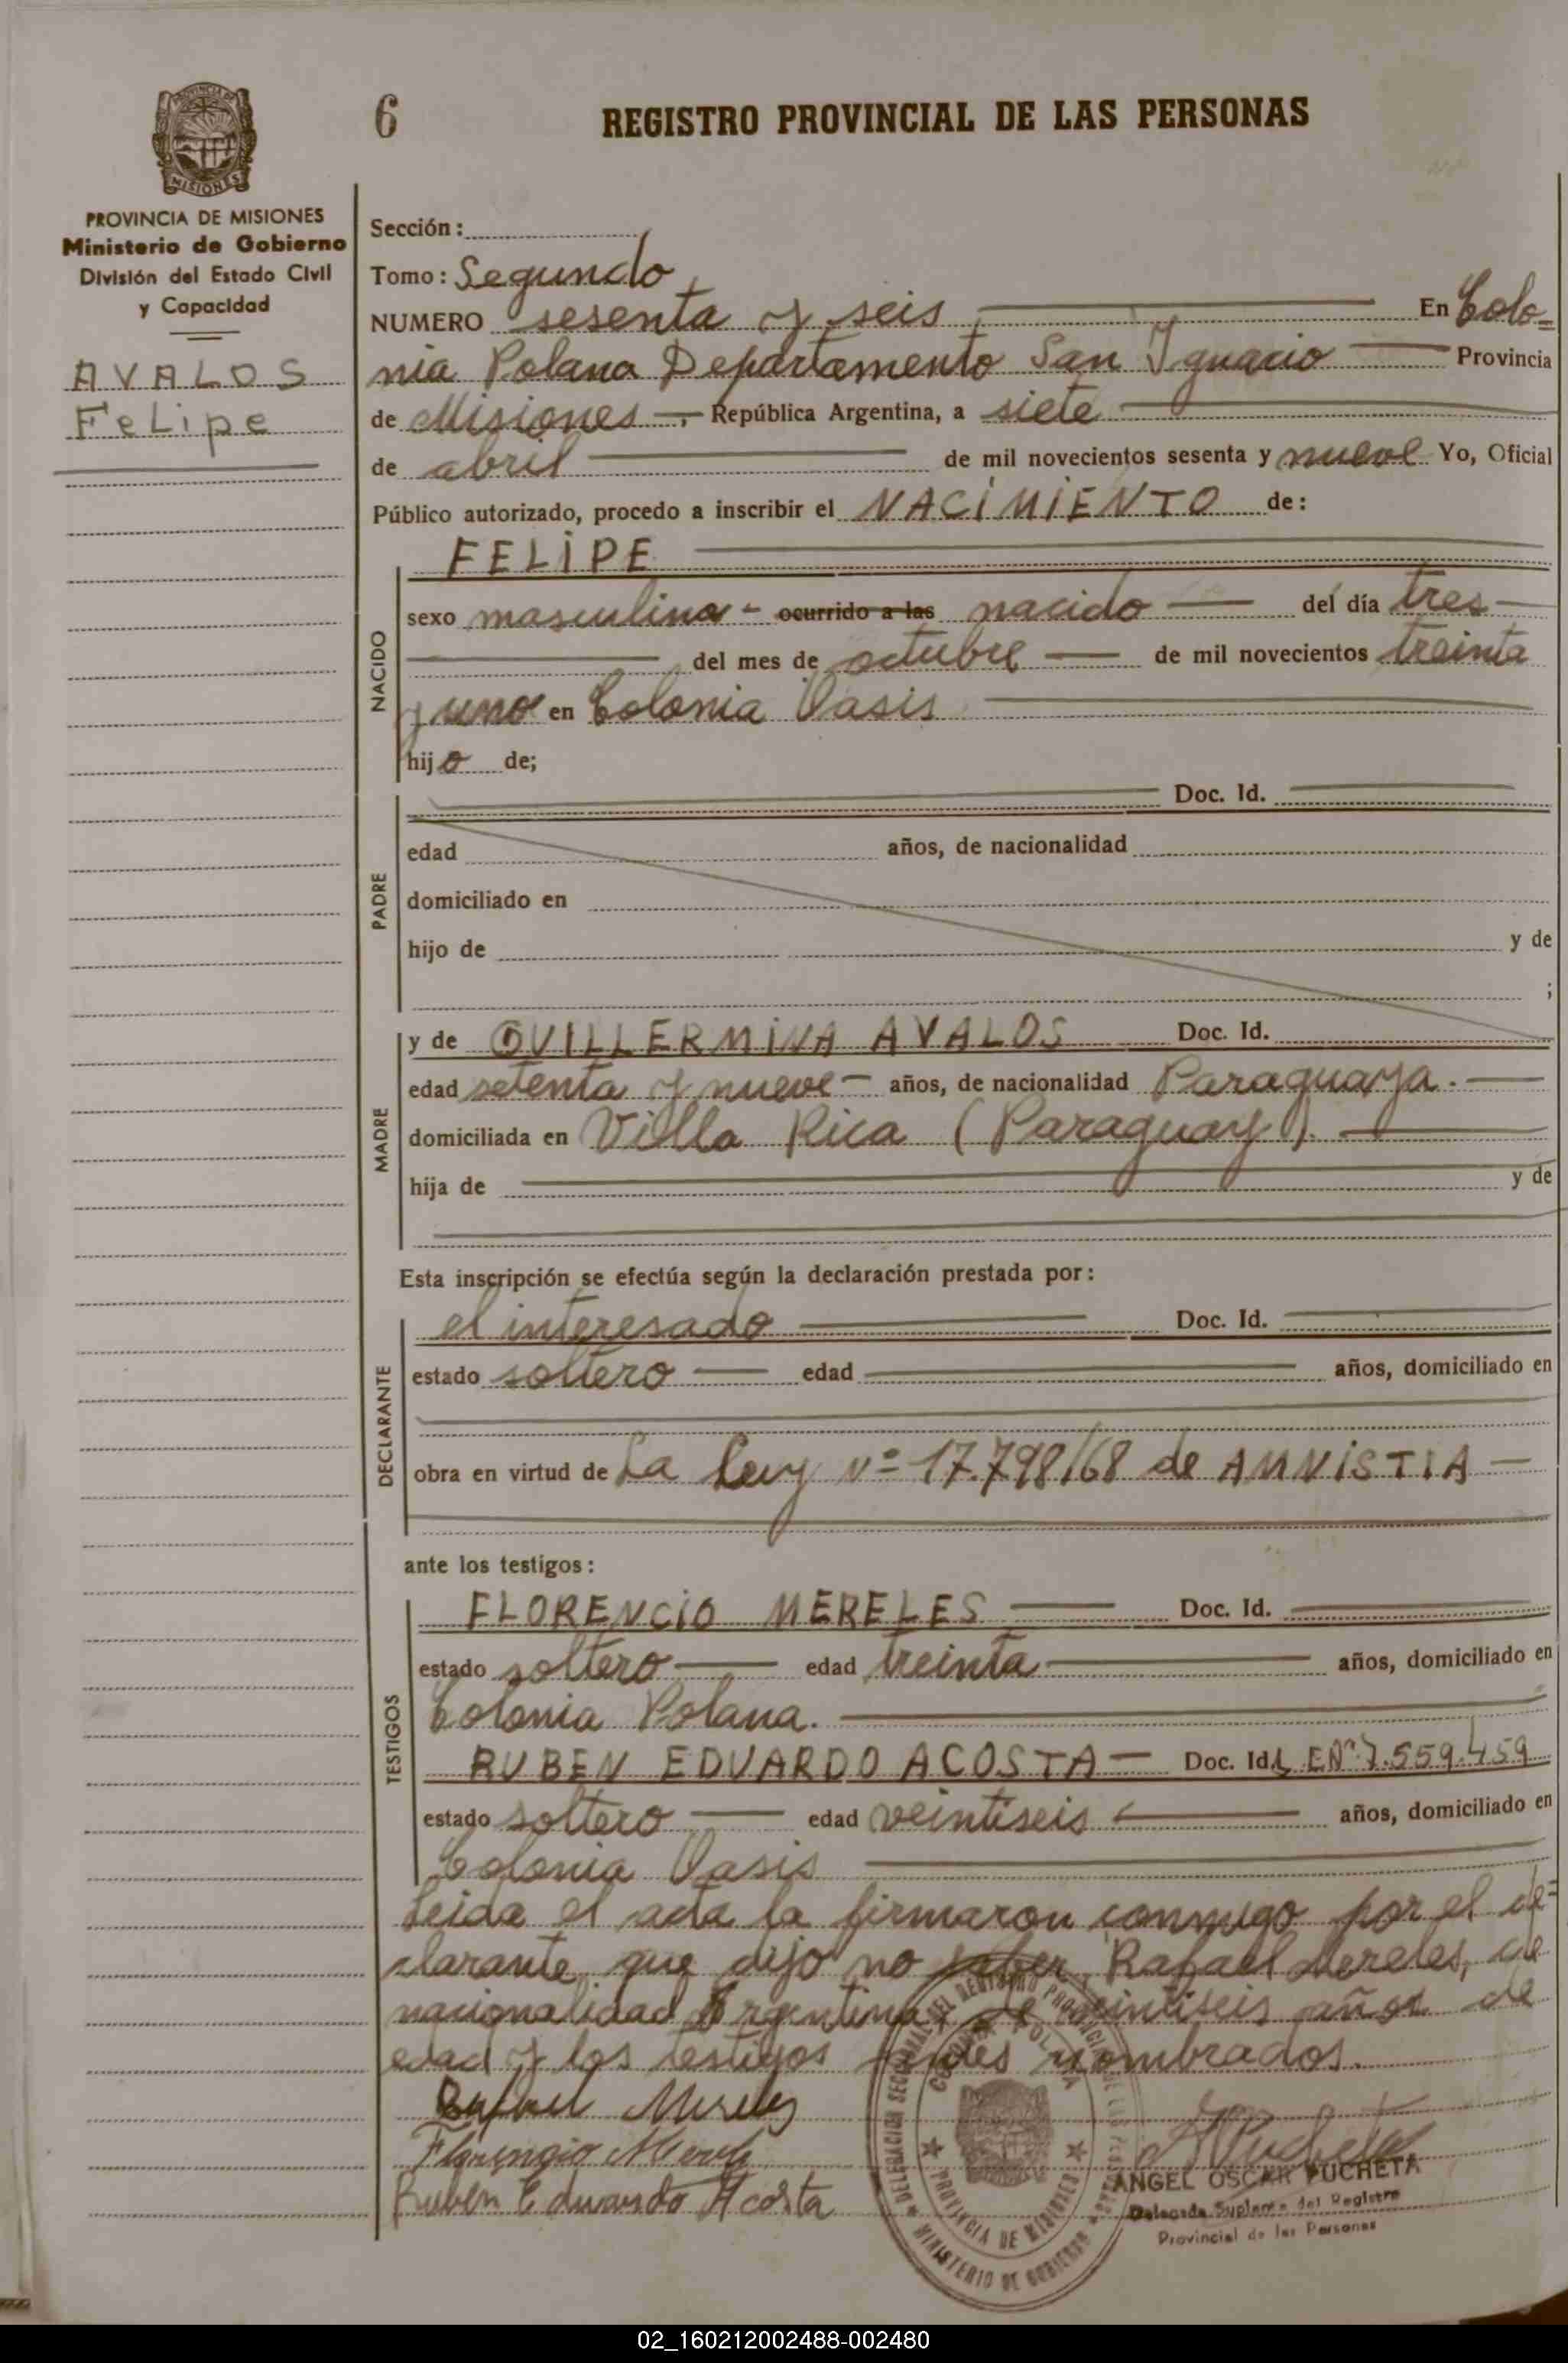 6
REGISTRO PROVINCIAL DE LAS PERSONAS
MISIONES
PROVINCIA DE MISIONES
Ministerio de Gobierno
División del Estado Civil
y Capacidad
AVALOS
FeLipe
Sección:
Tomo: Segundo
NUMERO sesenta y seis En Colo=
nia Polana Departamento San Ignacio Provincia
de Misiones, República Argentina, a siete
de abril de mil novecientos sesenta y nueve Yo, Oficial
Público autorizado, procedo a inscribir el NACIMIENTO de:
NACIDO
FELIPE
sexo masculino - ocurrido a las nacido del día tres
del mes de octubre de mil novecientos treinta
y uno en Colonia Oasis
hijo de;
PADRE
Doc. Id.
edad años, de nacionalidad
domiciliado en
hijo de y de
;
MADRE
y de GUILLERMINA AVALOS Doc. Id.
edad setenta y nueve - años, de nacionalidad Paraguaya.
domiciliada en Villa Rica (Paraguay).
hija de y de
Esta inscripción se efectúa según la declaración prestada por:
DECLARANTE
el interesado Doc. Id.
estado soltero edad años, domiciliado en
obra en virtud de La Ley nº 17.798/68 de AMNISTIA
ante los testigos:
TESTIGOS
FLORENCIO MERELES Doc. Id.
estado soltero edad treinta años, domiciliado en
Colonia Polana.
RUBEN EDUARDO ACOSTA Doc. Id. L ENº 7.559.459
estado soltero edad veintiseis años, domiciliado en
Colonia Oasis
Leida el acta la firmaron conmigo por el de=
clarante que dijo no saber, Rafael Mereles, de
nacionalidad Argentina, de veintiseis años de
edad y los testigos antes nombrados.
Rafael Mereles
Florencio Merele
Ruben Eduardo Acosta
PROVINCIA DE MISIONES
MINISTERIO DE GOBIERNO
ANGEL OSCAR PUCHETA
Delegado Suplente del Registro
Provincial de las Personas
02_160212002488-002480